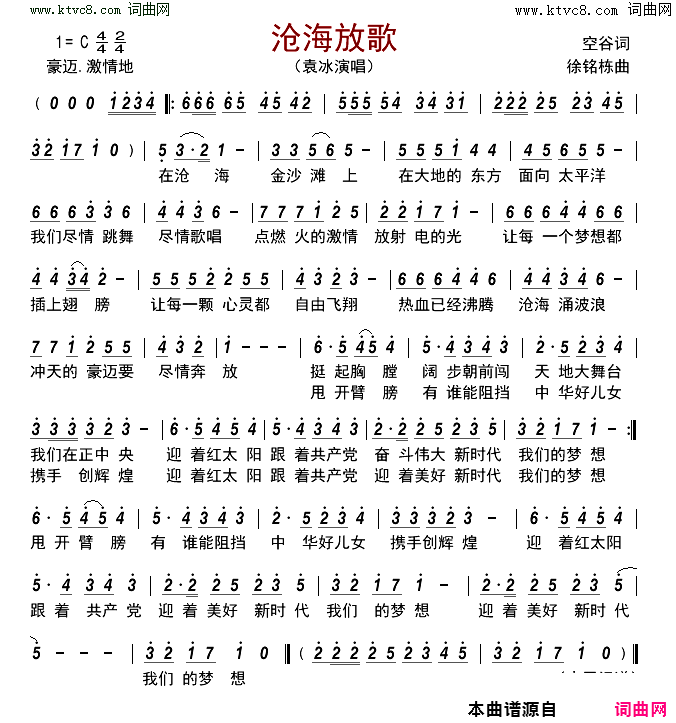 www.ktvc8.com 词曲网 www.ktvc8.com 词曲网
沧海放歌
1= C 4/4 2/4 空谷词
豪迈.激情地 (袁冰演唱) 徐铭栋曲
( 0 0 0 1234 ‖: 666 65 45 42 | 555 54 34 31 | 222 25 23 45 |
32 17 1 0 ) | 5 3·2 1 - | 3 3 5 6 5 - | 5 5 5 1 4 4 | 4 5 6 5 5 - |
在沧 海 金沙 滩 上 在大地的 东方 面向 太平洋
6 6 6 3 3 6 | 4 4 3 6 - | 7 7 7 1 2 5 | 2 2 1 7 1 - | 6 6 6 4 4 6 6
我们尽情 跳舞 尽情歌唱 点燃 火的激情 放射 电的光 让每 一个梦想都
4 4 34 2 - | 5 5 5 2 5 5 | 4 3 2 3 - | 6 6 6 4 6 6 | 4 3 4 5 -
插上翅 膀 让每一颗 心灵都 自由飞翔 热血已经沸腾 沧海 涌波浪
7 7 1 2 5 5 | 4 3 2 | 1 - - - | 6·5 45 4 | 3·5 4 3 4 3 | 2·5 3 4 3
冲天的 豪迈要 尽情奔 放 挺 起胸 膛 阔 步朝前闯 天 地大舞台
甩 开臂 膀 有 谁能阻挡 中 华好儿女
3 3 3 3 2 - | 6·5 4 5 4 | 3·5 4 3 4 3 | 2·2 2 5 2 3 5 | 3 2 1 7 1 - :‖
我们在正中 央 迎 着红太 阳 跟 着共产党 奋 斗伟大 新时代 我们的梦 想
携手 创辉 煌 迎 着红太 阳 跟 着共产党 迎 着美好 新时代 我们的梦 想
6·5 45 4 | 3·5 4 3 4 3 | 2·5 3 4 3 | 3 3 3 2 - | 6·5 4 5 4
甩 开 臂 膀 有 谁能阻挡 中 华好儿女 携手创辉 煌 迎 着红太阳
3·5 4 3 4 3 | 2·2 2 5 2 3 5 | 3 2 1 7 1 - | 2·2 2 5 2 3 5
跟 着 共产 党 迎 着 美好 新时 代 我们 的 梦 想 迎 着 美好 新时 代
5 - - - | 3 2 1 7 1 0 ‖ ( 2 2 2 5 2 3 4 5 | 3 2 1 7 1 0 ) ‖
我们 的 梦 想
本曲谱源自 词曲网